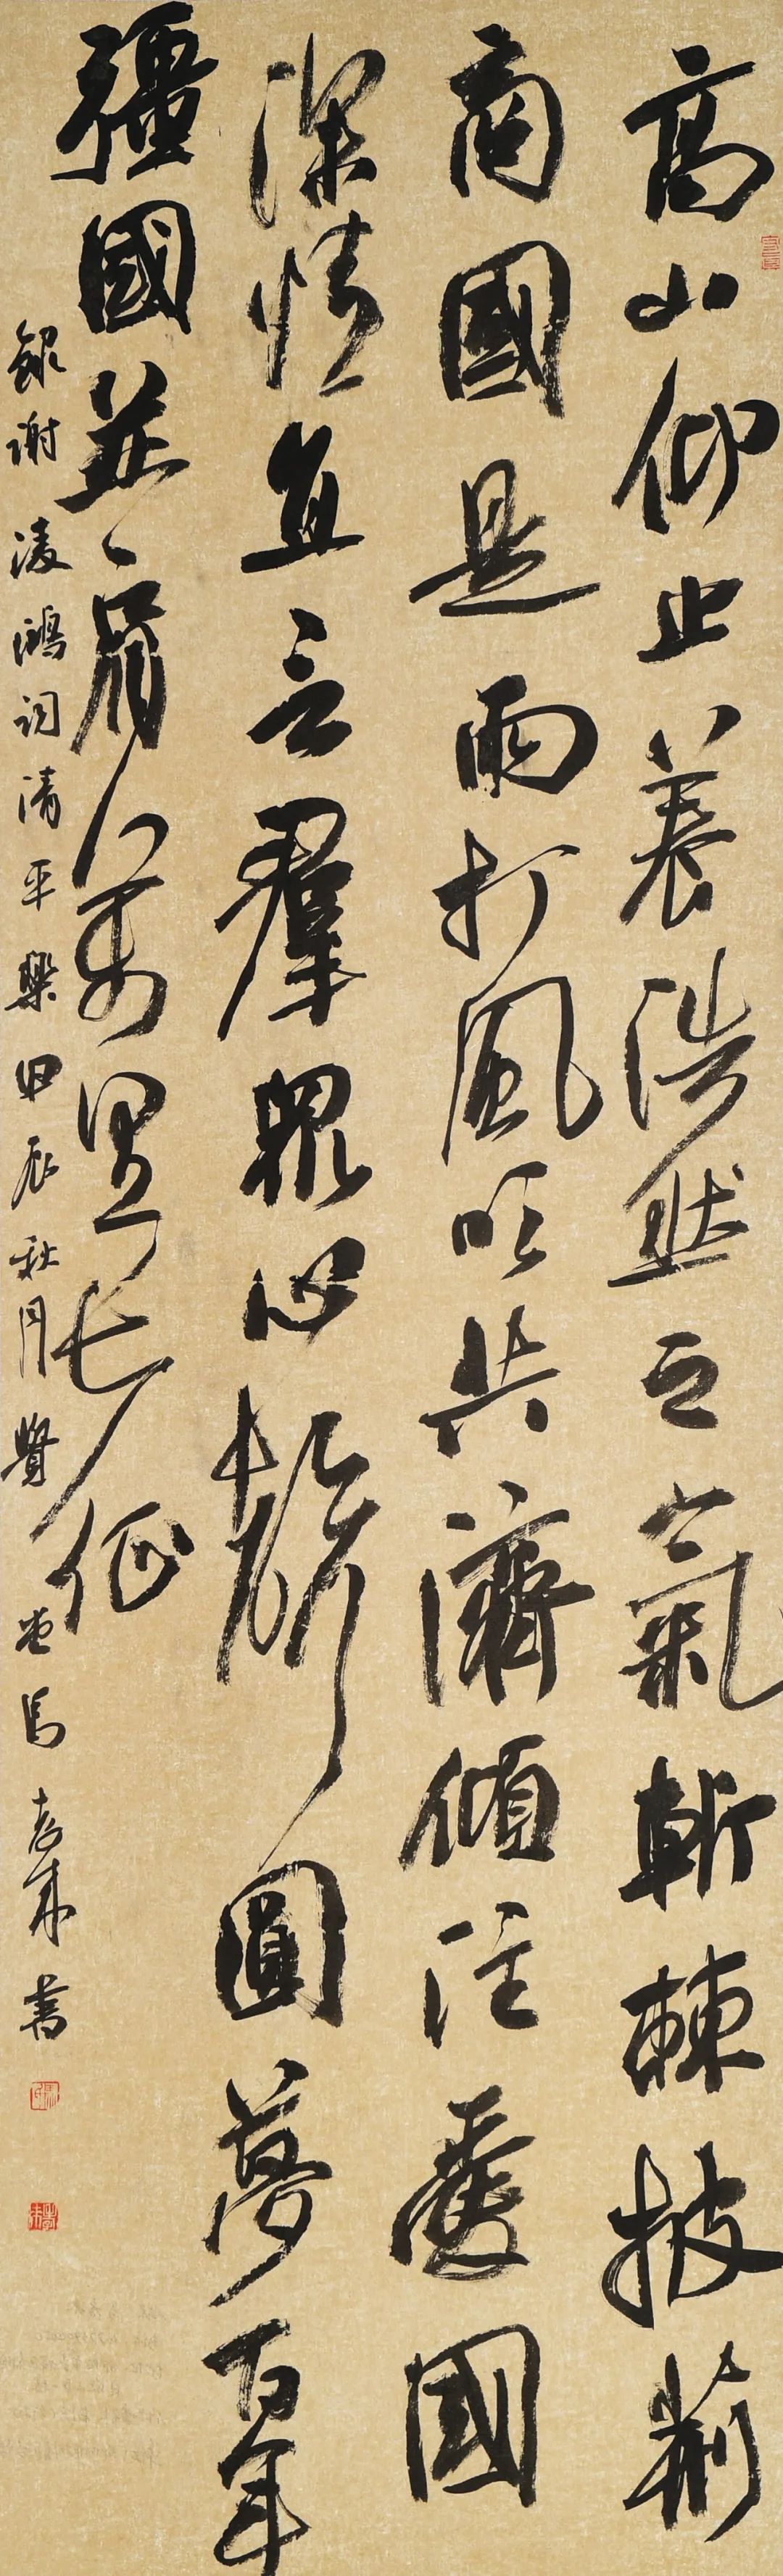 高山仰止養浩然之氣斬棘披荆
商國是雨打風吹共濟傾注愛國
深情直言羣眾心聲圓夢百年
疆國並肩萬里長征
錄謝凌鴻詞清平樂甲辰秋月賢堂馬孝來書